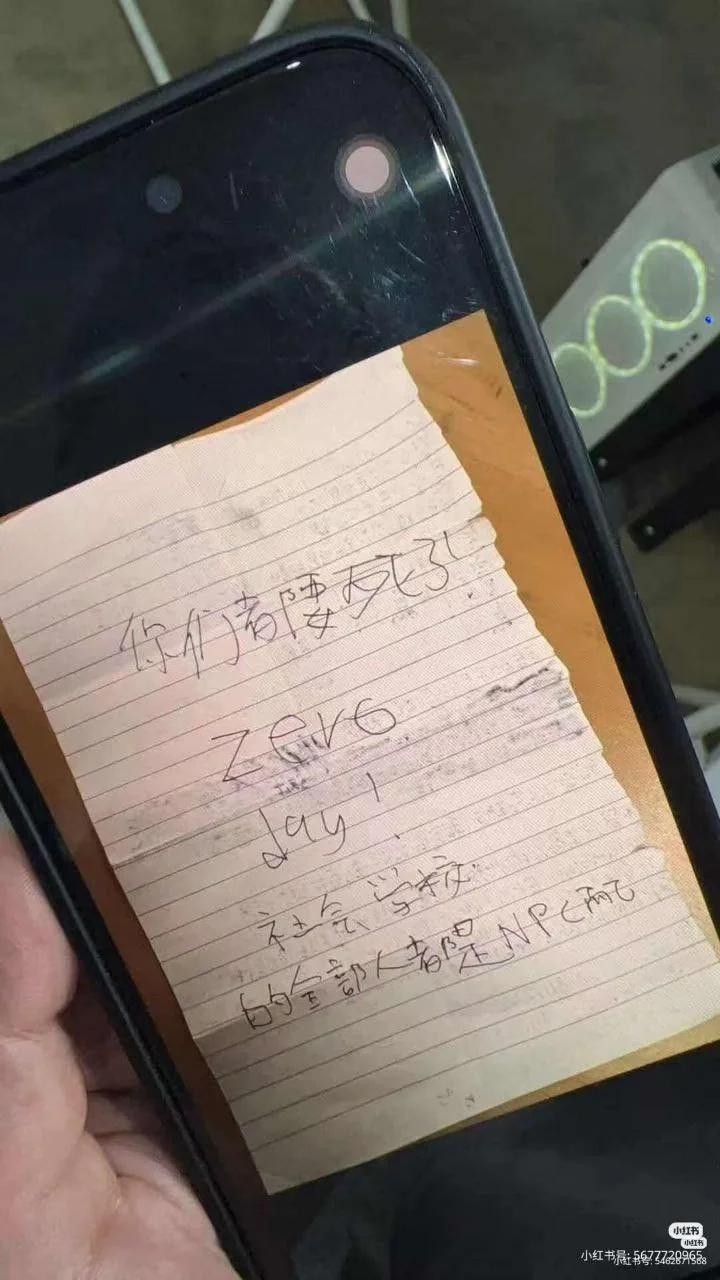 你们都要死了！
zero
day！
社会学校
的全部人都是NPC而已
小红书
小红书
小红书号: 5677720965
小红书号: 5462871568